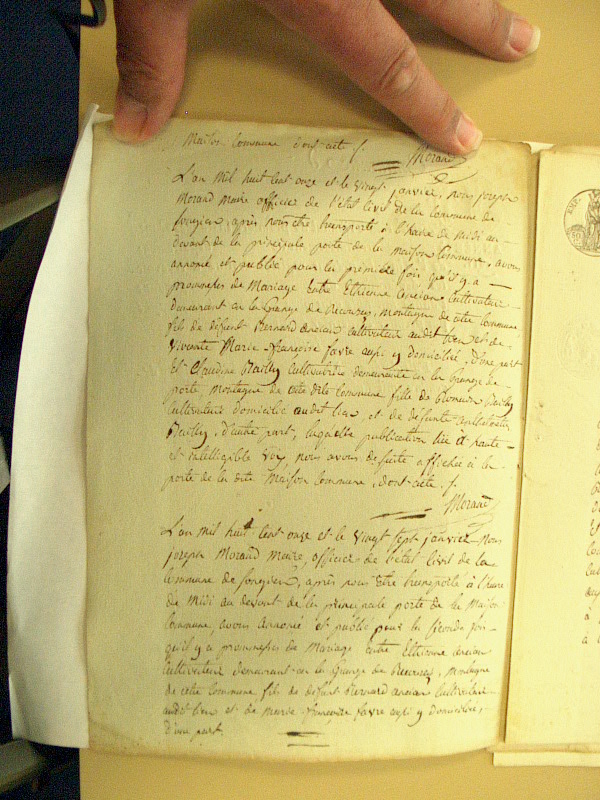 Maison Commune dont acte /.
Morand
L'an Mil huit cent onze et le vingt janvier, nous joseph
Morand maire officier de l'état civil de la Commune de
songieu, après nous être transporté à l'heure de Midi au
devant de la principale porte de la maison Commune, avons
annoncé et publié pour la première fois qu'il y a
promesses de Mariage Entre Ethienne ancian Cultivateur
demeurant en la Grange de montagne de cette Commune
fils de défunt Bernard ancian cultivateur audit lieu et de
vivante Marie françoise favre aussi y domiciliée, d'une part
Et Claudine Reilly Cultivatrice demeurante en la Grange de
porte montagne de cette dite Commune fille de Reilly
Cultivateur domicilié audit lieu et de défunte
Reilly, d'autre part, laquelle publication lue et haute
et intelligible voix, nous avons de suite affichée à la
porte de la dite Maison Commune, dont acte /.
Morand
L'an mil huit Cent onze et le vingt sept janvier Nous
joseph Morand Maire, officier de l'état civil de la
Commune de songieu, après nous être transporté à l'heure
de Midi au devant de la principale porte de la Maison
Commune, avons Annoncé et publié pour la seconde fois
qu'il y a promesses de Mariage entre Ethienne ancian
Cultivateur demeurant en la Grange de montagne
de cette Commune fils de défunt Bernard ancian Cultivateur
audit lieu et de Marie françoise favre aussi y domiciliée,
d'une part.
EMP.